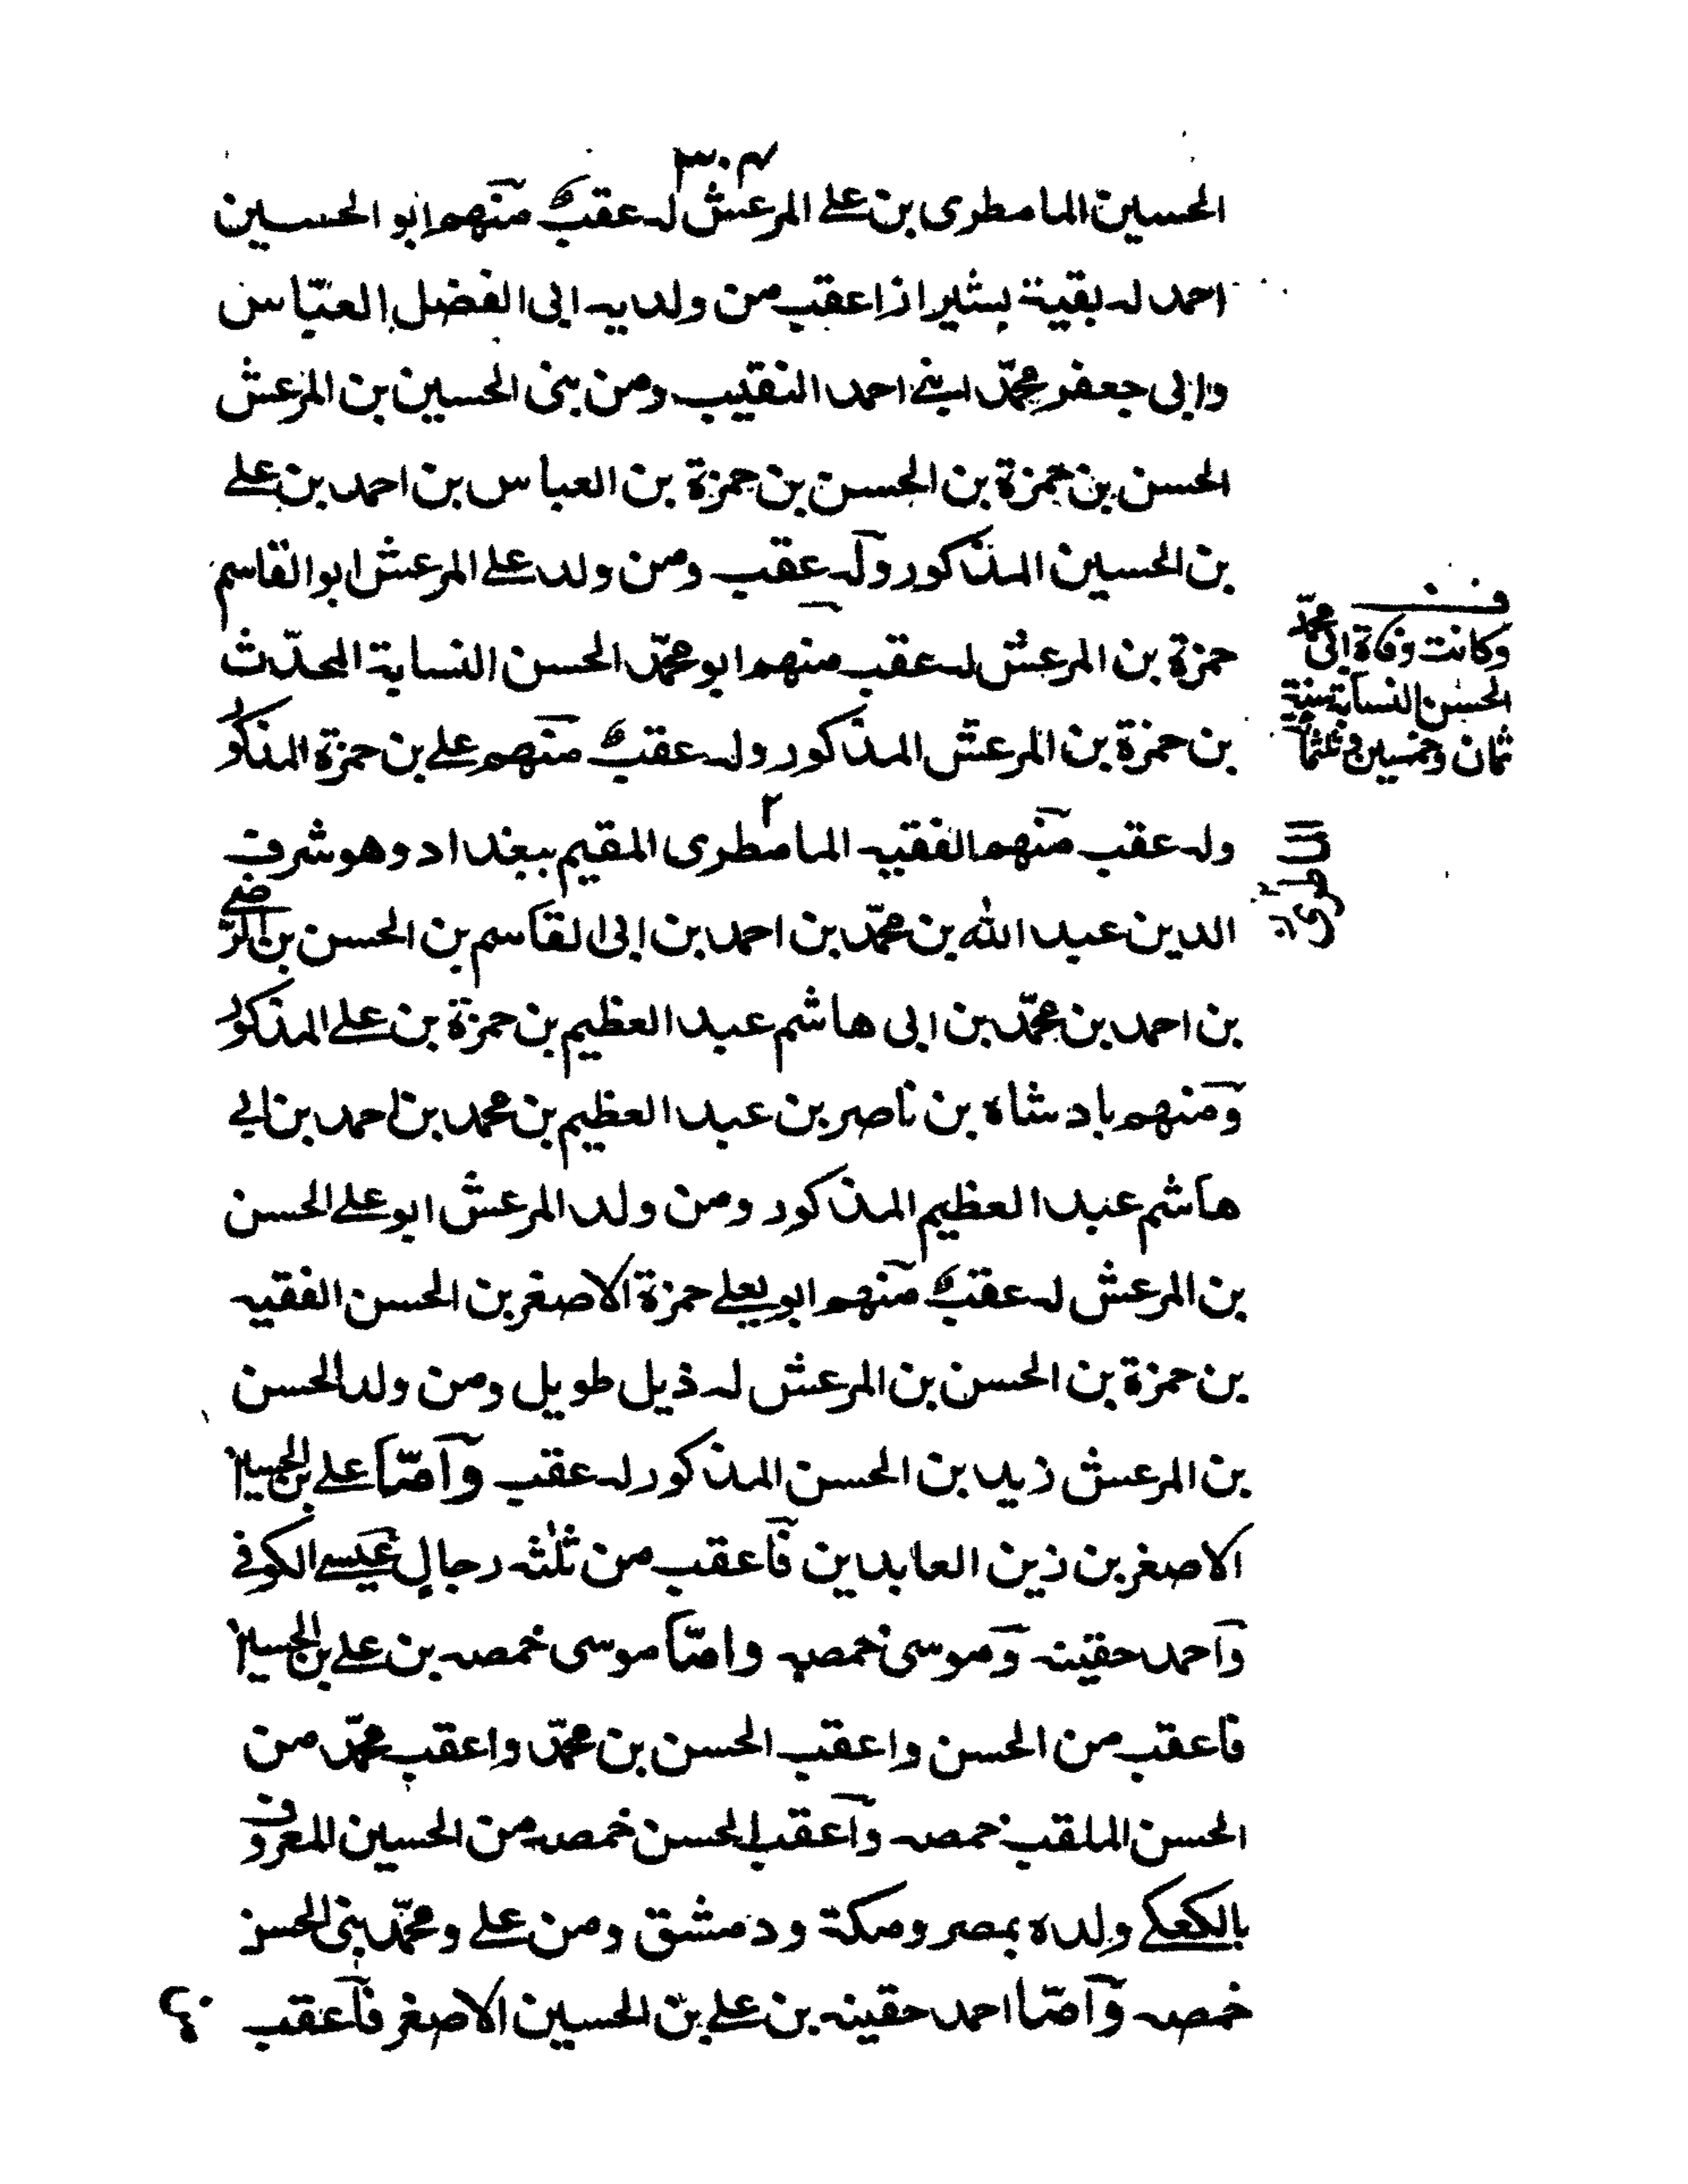 ٣٠٤
الحسين المامطرى بن على المرعش له عقب منهم ابو الحسين
احمد له بقية بشيراز اعقب من ولديه ابى الفضل العبّاس
وابى جعفر محمّد ابنى احمد النقيب ومن بنى الحسين بن المرعش
الحسن بن حمزة بن الحسن بن حمزة بن العباس بن احمد بن على
بن الحسين المذكور وله عقب ومن ولد على المرعش ابو القاسم
حمزة بن المرعش له عقب منهم ابو محمّد الحسن النسابة المحدّث
بن حمزة بن المرعش المذكور وله عقب منهم على بن حمزة المذكور
وله عقب منهم الفقيه المامطرى المقيم ببغداد وهو شرف
الدين عبد الله بن محمّد بن احمد بن ابى القاسم بن الحسن بن الرضى
بن احمد بن محمّد بن ابى هاشم عبد العظيم بن حمزة بن على المذكور
ومنهم بادشاه بن ناصر بن عبد العظيم بن محمد بن احمد بن ابي
هاشم عبد العظيم المذكور ومن ولد المرعش ابو على الحسن
بن المرعش له عقب منهم ابو يعلى حمزة الاصغر بن الحسن الفقيه
بن حمزة بن الحسن بن المرعش له ذيل طويل ومن ولد الحسن
بن المرعش زيد بن الحسن المذكور له عقب وامّا على بن الحسين
الاصغر بن زين العابدين فاعقب من ثلثه رجال عيسى الكوفى
واحمد حقينه وموسى خمصه وامّا موسى خمصه بن على بن الحسين
فاعقب من الحسن واعقب الحسن بن محمّد واعقب محمّد من
الحسن الملقب خمصه واعقب الحسن خمصه من الحسين المعروف
بالكعكى ولده بمصر ومكة ودمشق ومن على ومحمّد بنى الحسن
خمصه وامّا احمد حقينه بن على بن الحسين الاصغر فاعقب
ف
وكانت وفاة ابى محمّد
الحسن النسابة سنة
ثمان وخمسين وثلثمائة